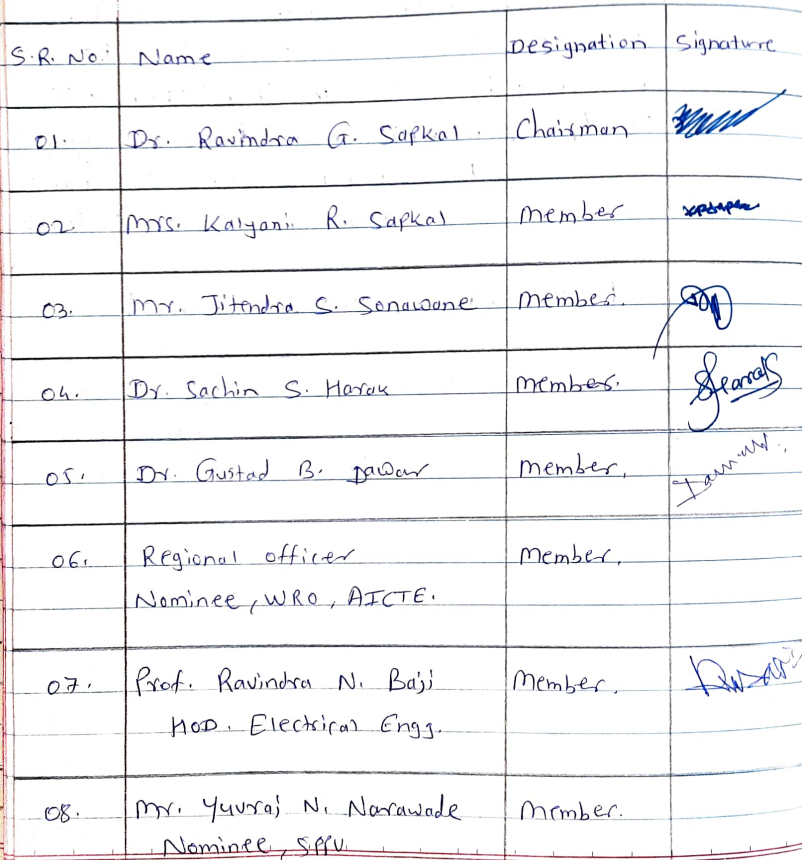 S.R. No. Name Designation Signature
01. Dr. Ravindra G. Sapkal. Chairman
02 Mrs. Kalyani R. Sapkal member
03. Mr. Jitendra S. Sonawane member.
04. Dr. Sachin S. Harak member.
05. Dr. Gustad B. Dawar member.
06. Regional officer member.
Nominee, WRO, AICTE.
07. Prof. Ravindra N. Baji member.
HOD. Electrical Engg.
08. Mr. Yuvraj N. Narawade member.
Nominee, SPPU.